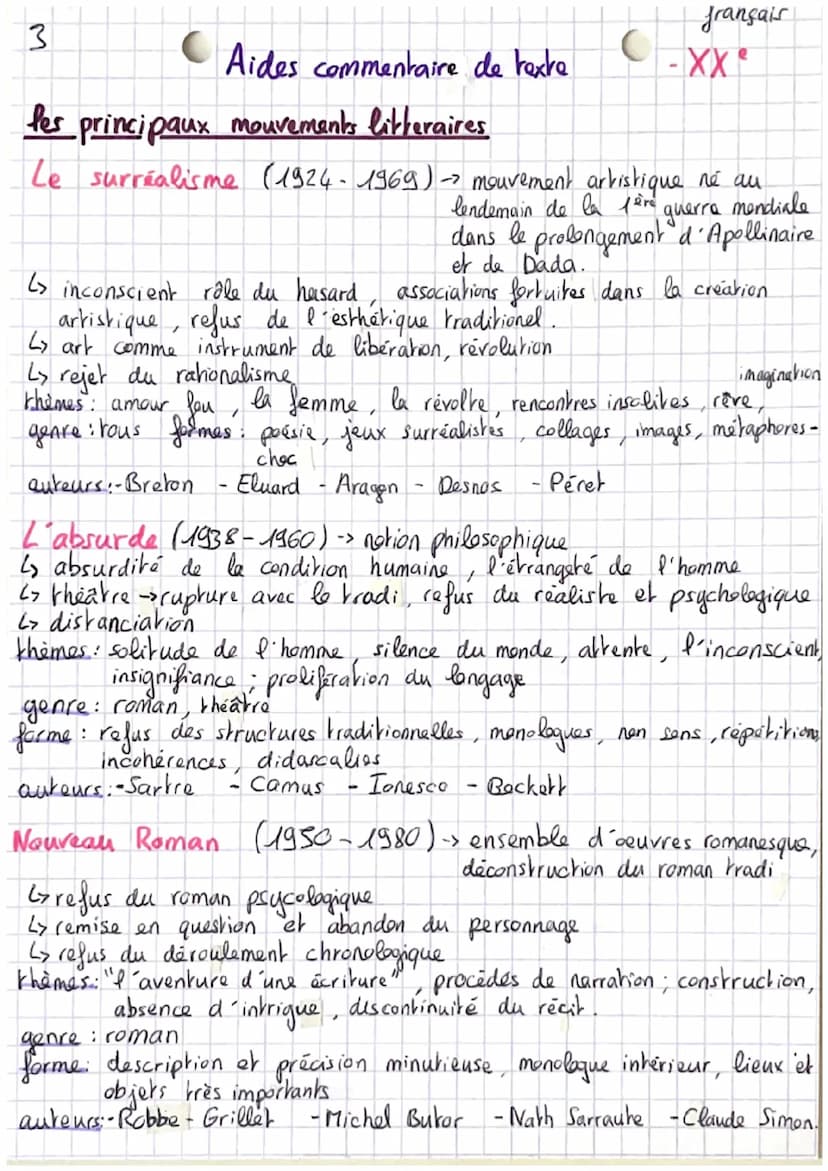 français
3
Aides commentaire de texte
- XXe
les principaux mouvements litteraires
Le surréalisme (1924 - 1969) → mouvement artistique né au
lendemain de la 1ère guerre mondiale
dans le prolongement d'Apollinaire
et de Dada.
↳ inconscient rôle du hasard, associations fortuites dans la création
artistique, refus de l'esthétique traditionel.
↳ art comme instrument de libération, révolution
↳ rejet du rationalisme
imagination
thèmes : amour fou, la femme, la révolte, rencontres insolites, rêve,
genre : tous formes : poésie, jeux surréalistes, collages, images, métaphores-
choc
auteurs :- Breton - Eluard - Aragon - Desnos - Péret
L'absurde (1938 - 1960) -> notion philosophique
↳ absurdité de la condition humaine, l'étrangeté de l'homme
↳ théâtre → rupture avec le tradi, refus du réaliste et psychologique
↳ distanciation
thèmes : solitude de l'homme, silence du monde, attente, l'inconscient,
insignifiance ; prolifération du langage
genre : roman, théâtre
forme : refus des structures traditionnelles, monologues, non sens, répétitions,
incohérences, didascalies
auteurs :- Sartre - Camus - Ionesco - Beckett
Nouveau Roman (1950 - 1980) → ensemble d'oeuvres romanesque,
déconstruction du roman tradi
↳ refus du roman psycologique
↳ remise en question et abandon du personnage
↳ refus du déroulement chronologique
thèmes : "l'aventure d'une écriture", procédés de narration ; construction,
absence d'intrigue, discontinuité du récit.
genre : roman
forme : description et précision minutieuse, monologue intérieur, lieux et
objets très importants
auteurs :- Robbe - Grillet - Michel Butor - Nath Sarraute - Claude Simon.